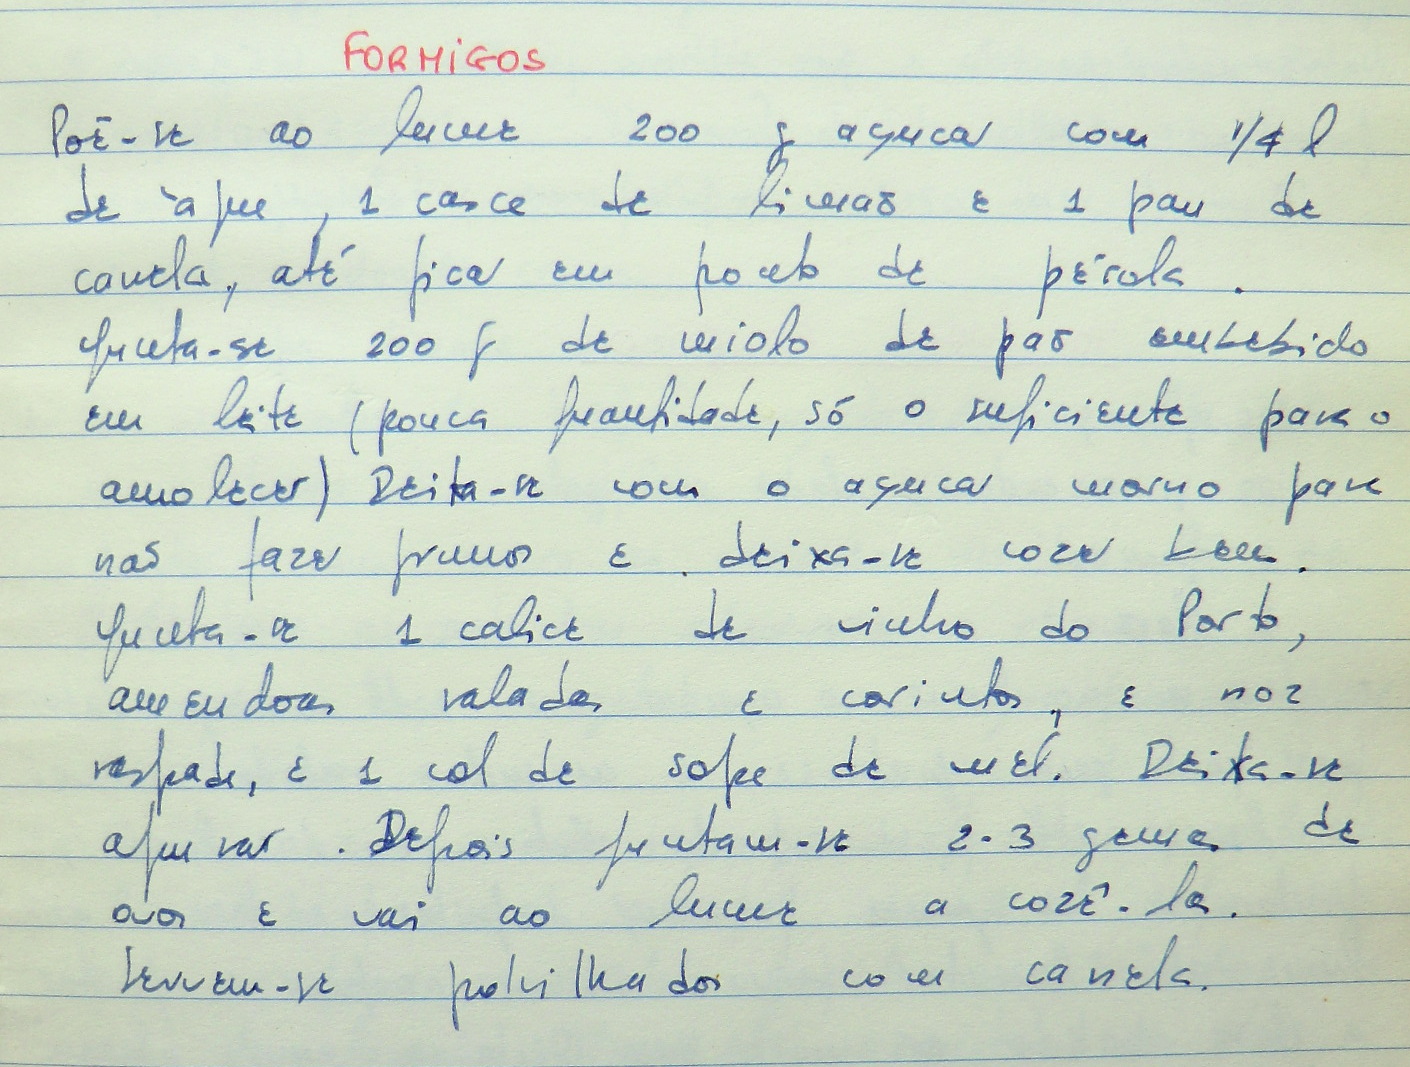 FORMIGOS
Põe-se ao lume 200 g açucar com 1/4 l
de àgua, 1 casca de limão e 1 pau de
canela, até ficar em ponto de pérola.
Junta-se 200 g de miolo de pão embebido
em leite (pouca quantidade, só o suficiente para o
amolecer) Deita-se com o açucar morno para
não fazer grumos e deixa-se cozer bem.
Junta-se 1 calice de vinho do Porto,
amendoas raladas e corintos, e noz
raspada, e 1 col de sopa de mel. Deixa-se
apurar. Depois juntam-se 2-3 gemas de
ovos e vai ao lume a cozê-las.
Servem-se polvilhados com canela.